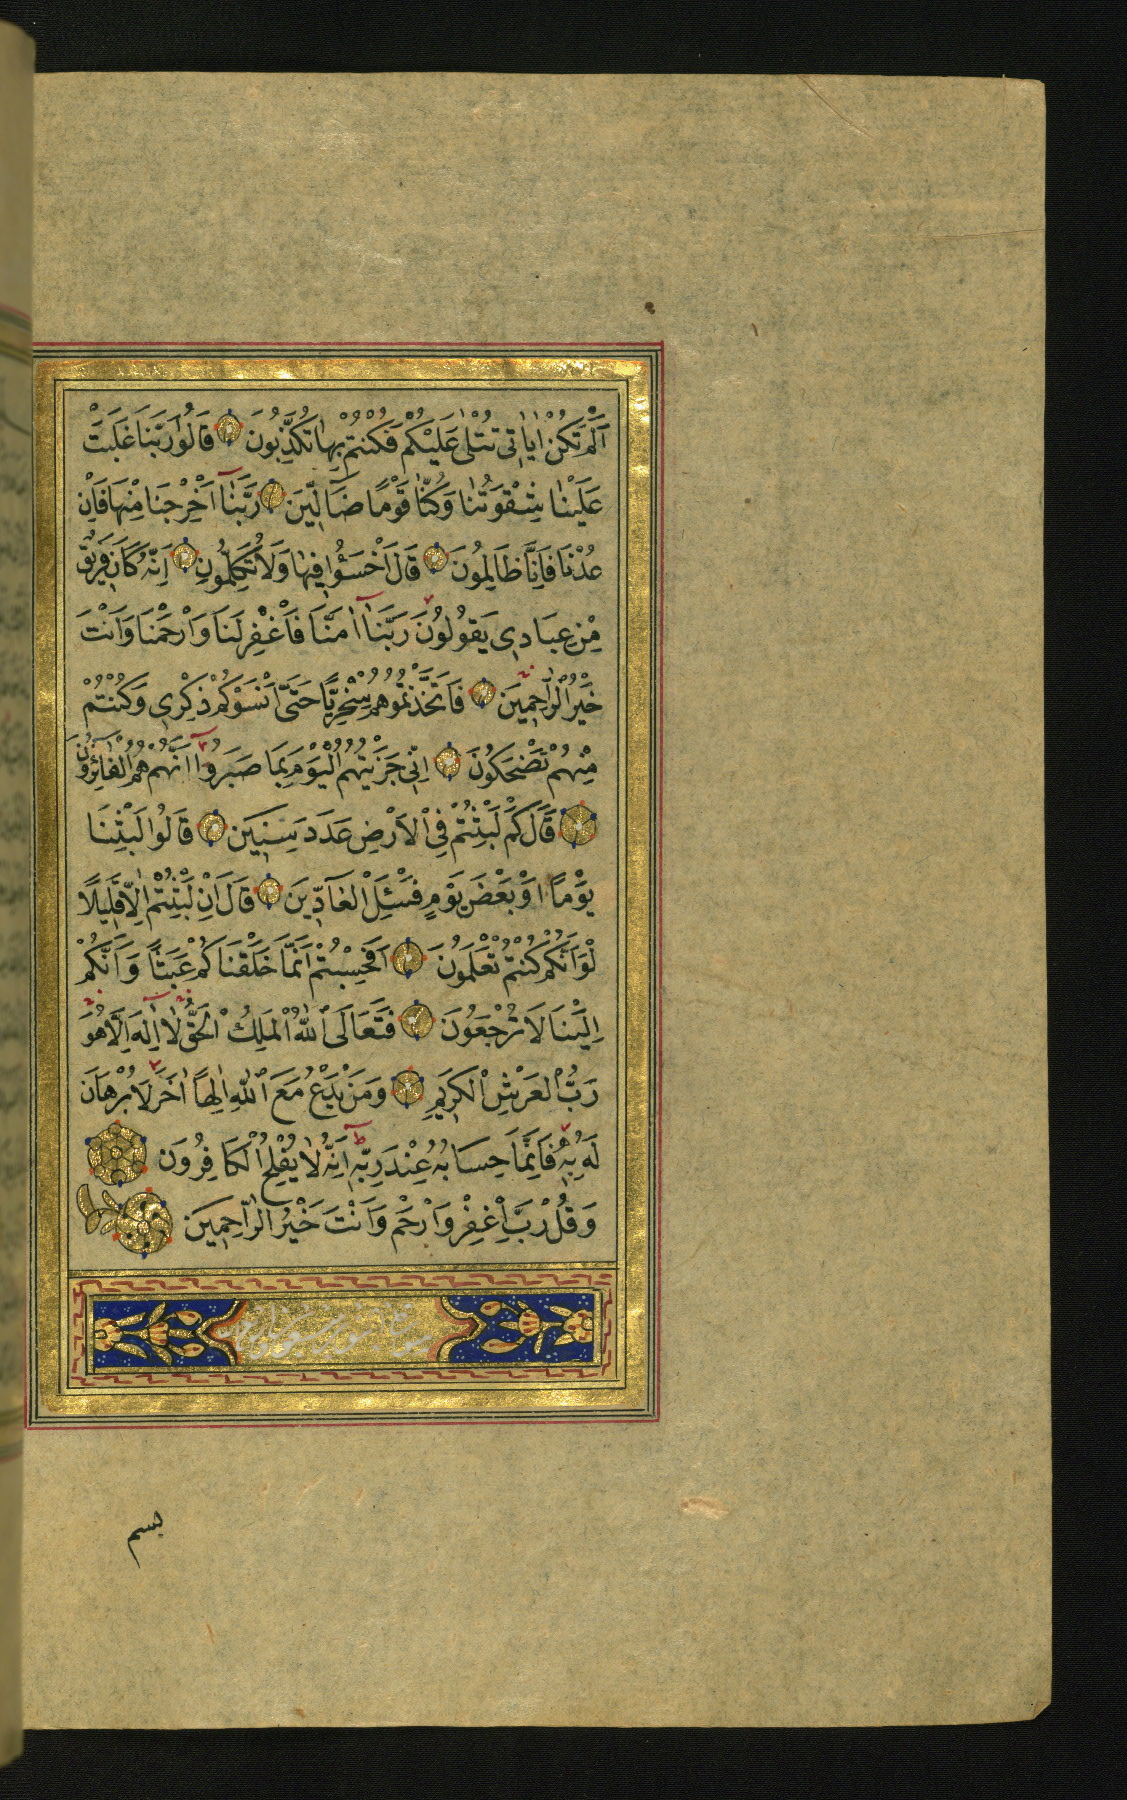 اَلَمْ تَكُنْ اٰيَاتِى تُتْلٰى عَلَيْكُمْ فَكُنْتُمْ بِهَا تُكَذِّبُونَ قَالُوا رَبَّنَا غَلَبَتْ
عَلَيْنَا شِقْوَتُنَا وَكُنَّا قَوْمًا ضَٓالِّينَ رَبَّنَٓا اَخْرِجْنَا مِنْهَا فَاِنْ
عُدْنَا فَاِنَّا ظَالِمُونَ قَالَ اخْسَؤُا فِيهَا وَلَا تُكَلِّمُونِ اِنَّهُ كَانَ فَرِيقٌ
مِنْ عِبَادِى يَقُولُونَ رَبَّنَٓا اٰمَنَّا فَاغْفِرْ لَنَا وَارْحَمْنَا وَاَنْتَ
خَيْرُ الرَّاحِمِينَ فَاتَّخَذْتُمُوهُمْ سِخْرِيًّا حَتّٰى اَنْسَوْكُمْ ذِكْرِى وَكُنْتُمْ
مِنْهُمْ تَضْحَكُونَ اِنِّى جَزَيْتُهُمُ الْيَوْمَ بِمَا صَبَرُٓوا اَنَّهُمْ هُمُ الْفَٓائِزُونَ
قَالَ كَمْ لَبِثْتُمْ فِى الْاَرْضِ عَدَدَ سِنِينَ قَالُوا لَبِثْنَا
يَوْمًا اَوْ بَعْضَ يَوْمٍ فَسْـَٔلِ الْعَٓادِّينَ قَالَ اِنْ لَبِثْتُمْ اِلَّا قَلِيلًا
لَوْ اَنَّكُمْ كُنْتُمْ تَعْلَمُونَ اَفَحَسِبْتُمْ اَنَّمَا خَلَقْنَاكُمْ عَبَثًا وَاَنَّكُمْ
اِلَيْنَا لَا تُرْجَعُونَ فَتَعَالَى اللّٰهُ الْمَلِكُ الْحَقُّ لَٓا اِلٰهَ اِلَّا هُوَ
رَبُّ الْعَرْشِ الْكَرِيمِ وَمَنْ يَدْعُ مَعَ اللّٰهِ اِلٰهًا اٰخَرَ لَا بُرْهَانَ
لَهُ بِهٖ فَاِنَّمَا حِسَابُهُ عِنْدَ رَبِّهٖ اِنَّهُ لَا يُفْلِحُ الْكَافِرُونَ
وَقُلْ رَبِّ اغْفِرْ وَارْحَمْ وَاَنْتَ خَيْرُ الرَّاحِمِينَ
بسم